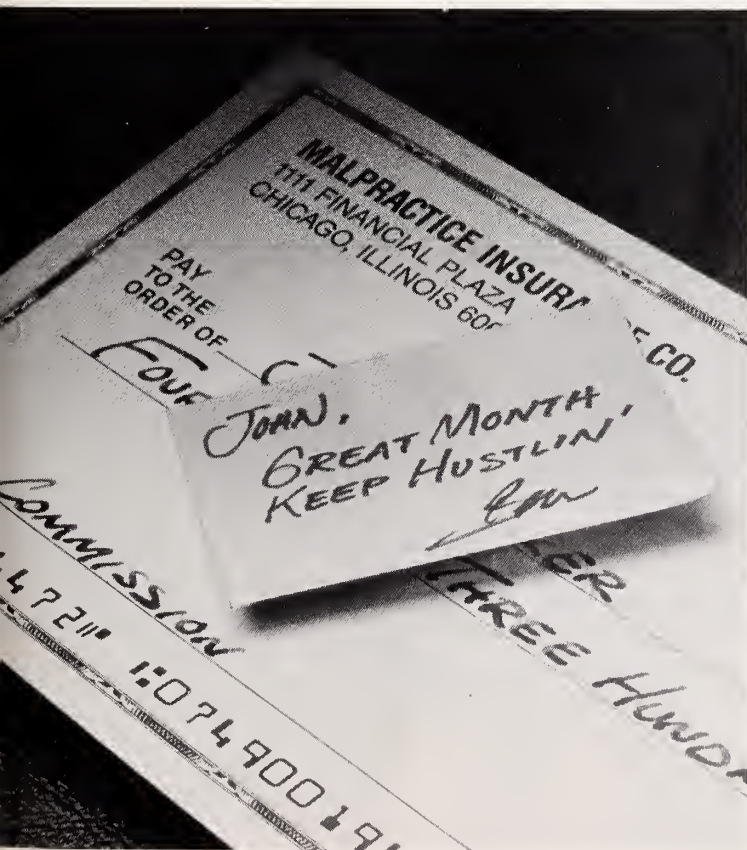 MALPRACTICE INSURA E CO.
1111 FINANCIAL PLAZA
CHICAGO, ILLINOIS 606
PAY
TO THE
ORDER OF
FOUR
JOHN,
GREAT MONTH
KEEP HUSTLIN'
THREE HUNDR
COMMISSION
472 074900191